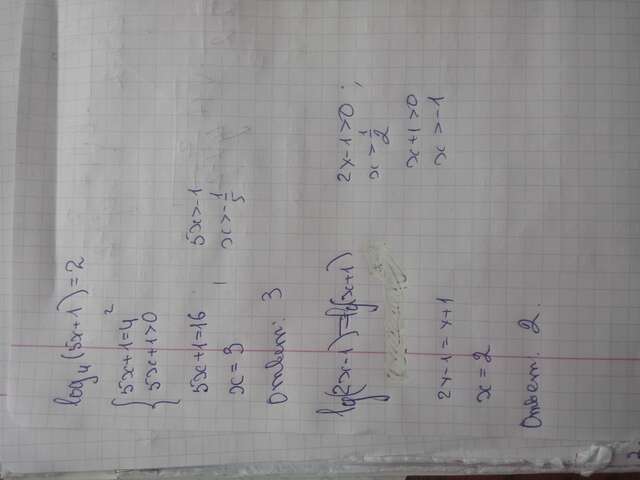 log₄(5x+1)=2
5x+1=4²
5x+1>0
5x+1=16
5x>-1
x=3
x>-1/5
Ответ: 3
lg(2x-1)=lg(x+1)
2x-1>0;
x>1/2
x+1>0
x>-1
2x-1=x+1
x=2
Ответ. 2.